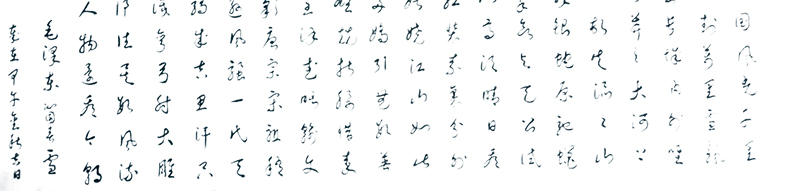 国风光千里
封万里雪飘
长城内外惟
莽莽大河上
顿失滔滔山
银蛇原驰蜡
欲与天公试
高须晴日看
装素裹分外
娆江山如此
娇引无数英
竞折腰惜秦
汉武略输文
唐宗宋祖稍
风骚一代天
成吉思汗只
弯弓射大雕
往矣数风流
人物还看今朝
毛泽东 雪
岁在甲午金秋吉日